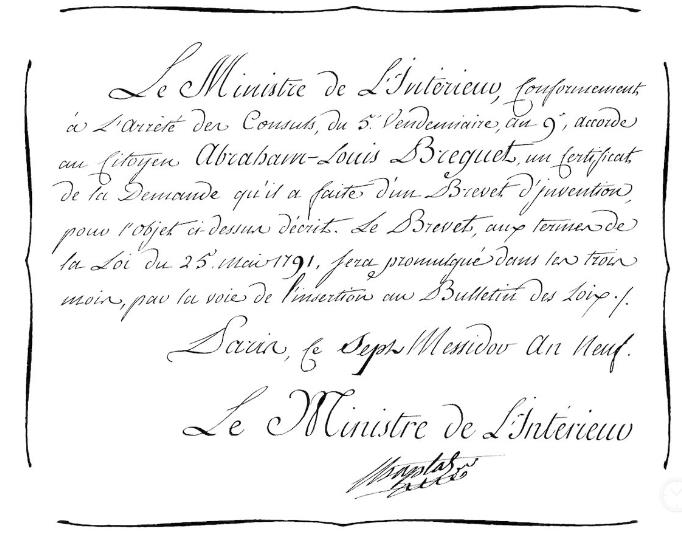 Le Ministre de L'Intérieur, Conformément
à L'Arrêté des Consuls, du 5. Vendemiaire, an 9e, accorde
au Citoyen Abraham-Louis Breguet, un Certificat
de la Demande qu'il a faite d'un Brevet d'invention,
pour l'objet ci-dessus décrit. Le Brevet, aux termes de
la Loi du 25. mai 1791, sera promulgué dans les trois
mois, par la voie de l'insertion au Bulletin des Loix ./.
Paris, Ce Sept Messidor An Neuf.
Le Ministre de L'Intérieur
Chaptal